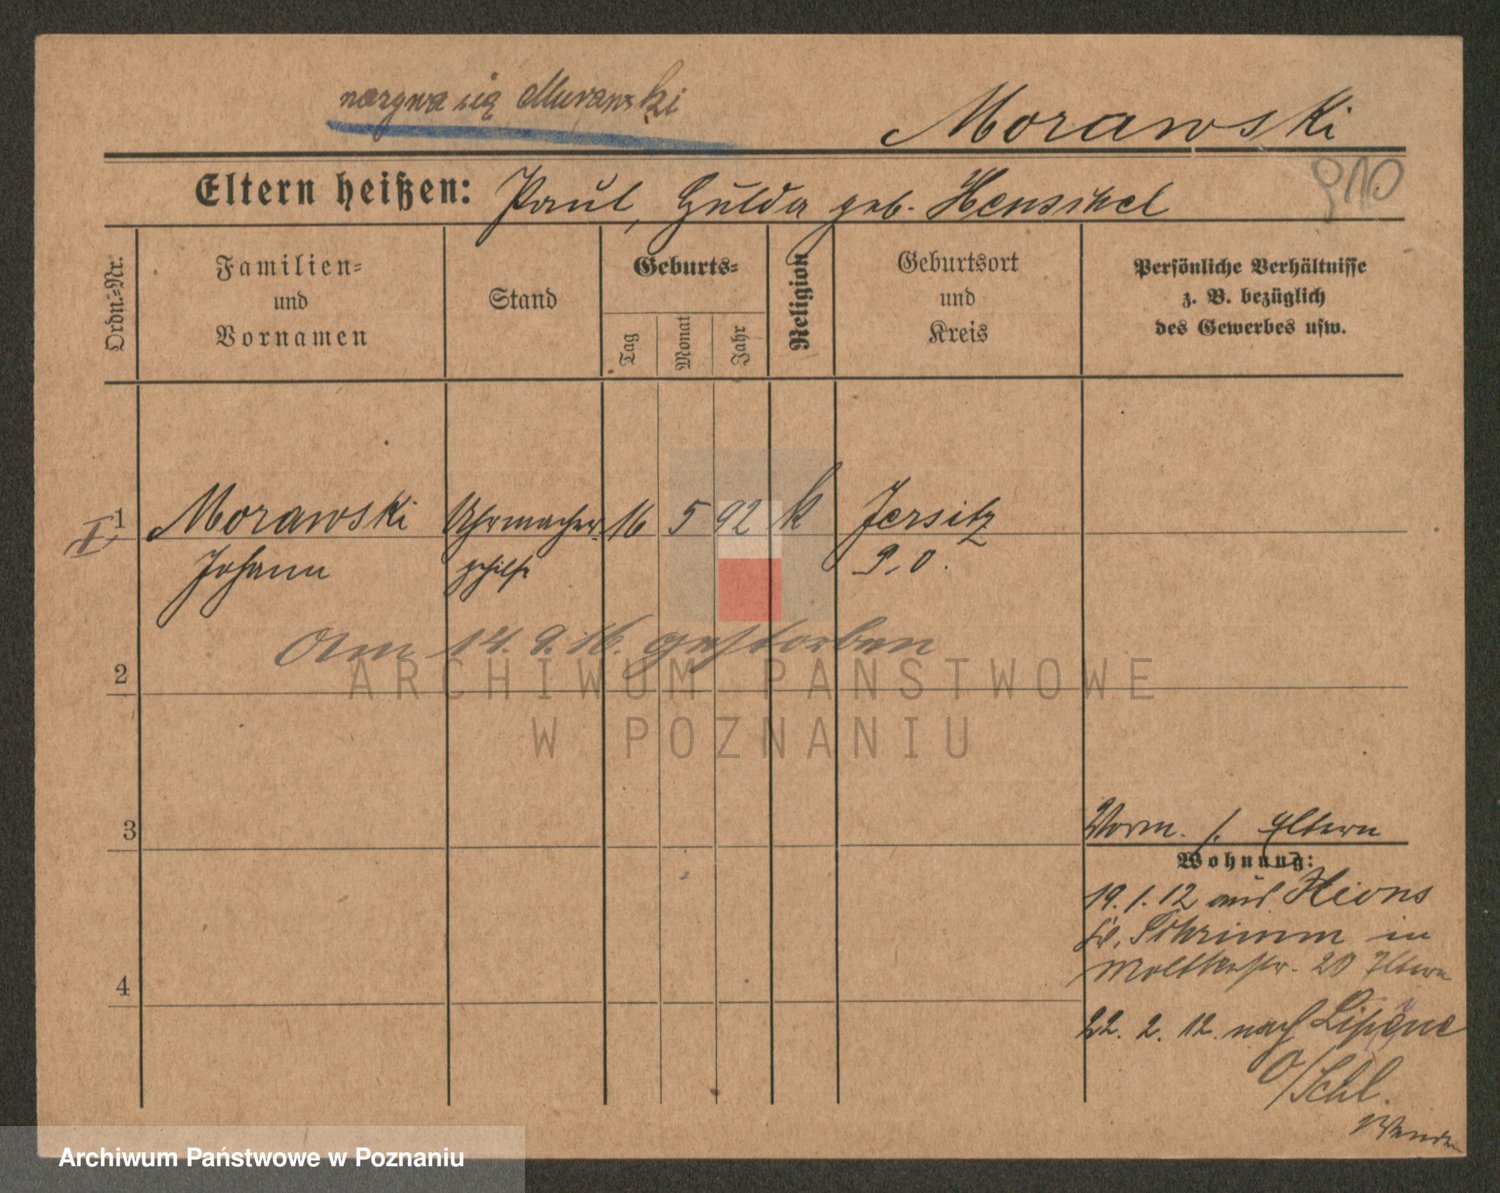 nazywa się Murawski
Morawski
Eltern heißen: Paul, Hulda geb. Henschel
910
Ordn.-Nr.
Familien-
und
Vornamen
Stand
Geburts-
Tag
Monat
Jahr
Religion
Geburtsort
und
Kreis
Persönliche Verhältnisse
z. B. bezüglich
des Gewerbes usw.
I 1 Morawski Uhrmacher- 16 5 92 k Jersitz
Johann gehilfe P. O.
Am 14. 9. 16. gestorben
2
ARCHIWUM PAŃSTWOWE
W POZNANIU
3
Vorm. s. Eltern
Wohnung:
19. 1. 12 aus Xions
Kr. Schrimm in
Moltkestr. 20 Eltern
4
22. 2. 12. nach Lipine
O/Schl.
Wenden
Archiwum Państwowe w Poznaniu